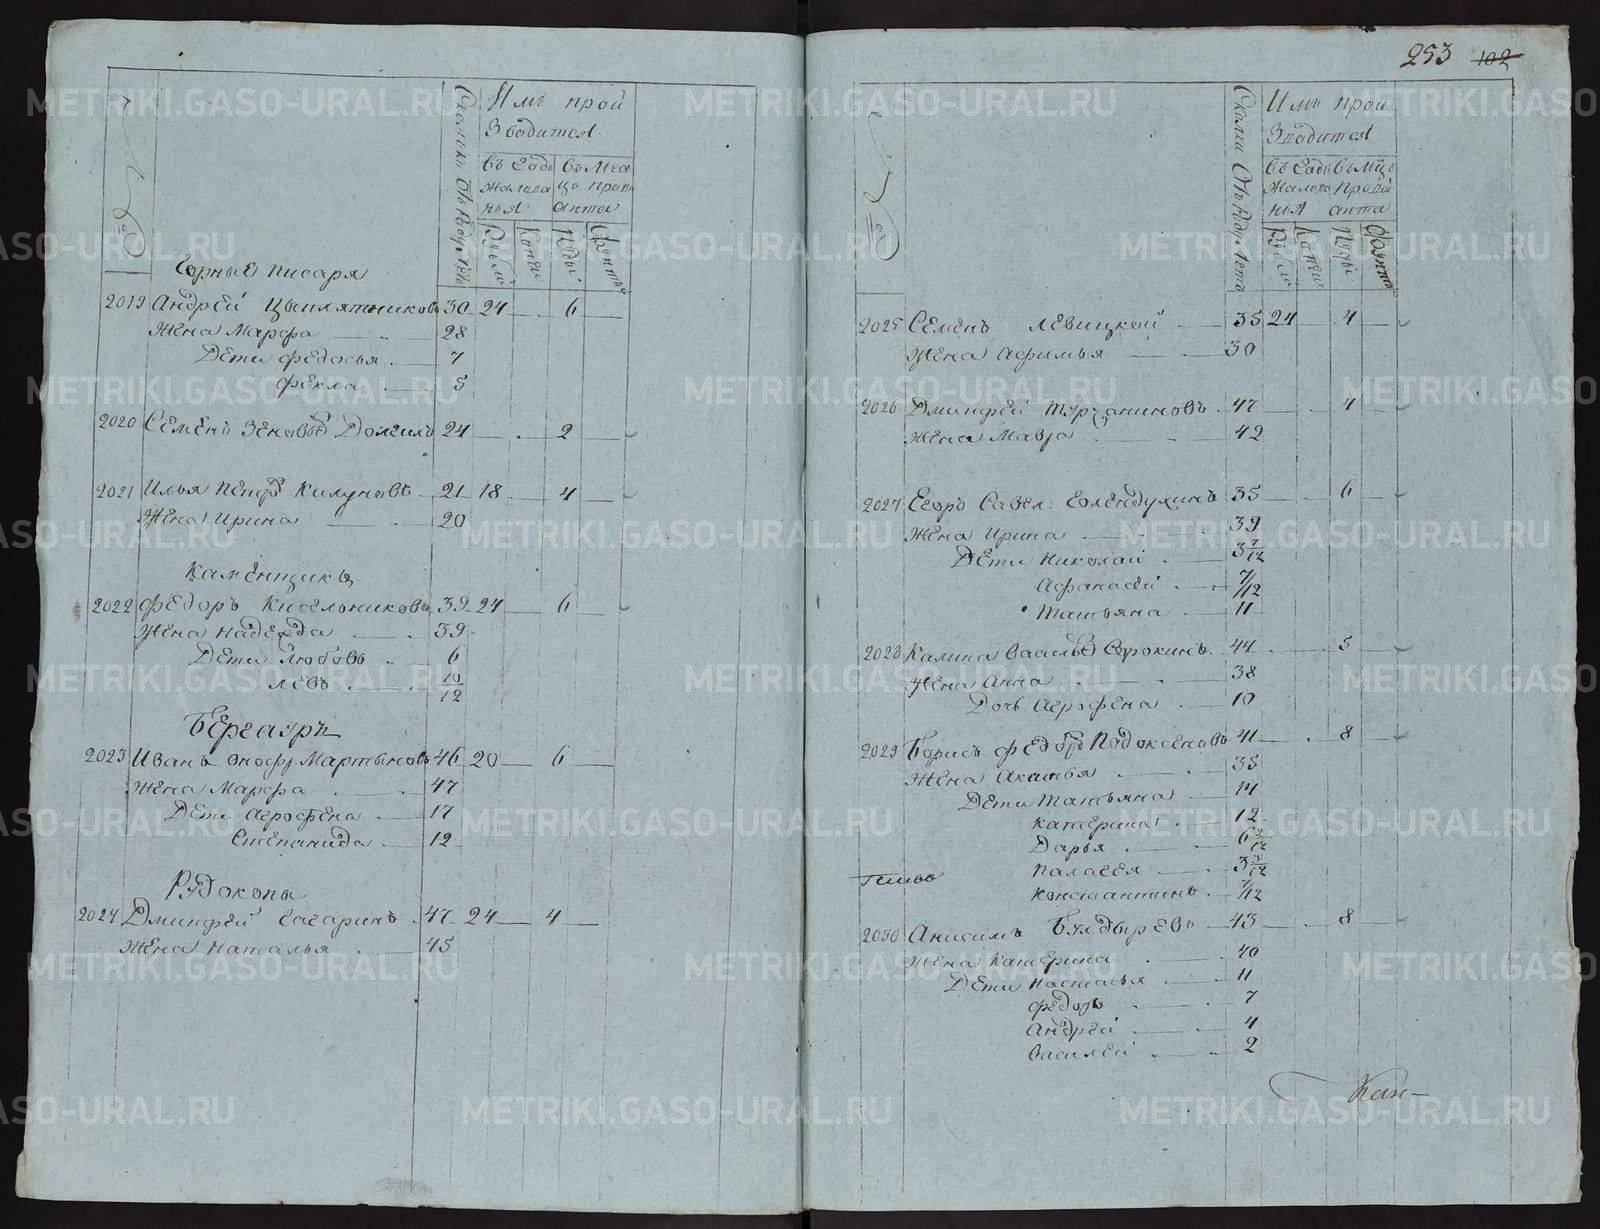 253 102
№
Сколики отъ роду летъ
Имъ прои
зводится
въ годъ
въ меся
жалова
цъ прови
нья
анта
Рубли
Копеи
Пуды
Фунты
Горные писаря
2019 Андрей Цыплятниковъ 30 24 6
Жена Марфа 28
Дети Федосья 7
Фекла 5
2020 Семенъ Зеновье Долгихъ 24 2
2021 Илья Петро 21 18 4
Жена Ирина 20
Каменщикъ
2022 Федоръ Кисельниковъ 39 24 6
Жена Надежда 39
Дети Любовь 6
Левъ 10/12
Бергауръ
2023 Иванъ Онофр Мартыновъ 46 20 6
Жена Марфа 47
Дети Агрофена 17
Степанида 12
Рудокопы
2024 Дмитрей Гагаринъ 47 24 4
Жена Наталья 45
№
отъ роду летъ
Имъ прои
зводится
въ годъ въ мцъ
жалова прови
нья анта
Рубли
Копеи
Пуды
Фунты
2025 Семенъ Левицкой 35 24 4
Жена Афимья 30
2026 Дмитрей Турчаниновъ 47 4
Жена Мавра 42
2027 Егоръ Савел: Голендухинъ 35 6
Жена Ирина 39
Дети Николай 3 7/12
Афанасей 7/12
Татьяна 11
2028 Калина Василье Сорокинъ 44 5
Жена Анна 38
Дочь Агрофена 10
2029 Борисъ Федоро Подоксеновъ 41 8
Жена Акилья 35
Дети Татьяна 14
Катерина 12
Дарья 6 2/12
Палагея 3 3/12
Константинъ 7/12
2030 Анисимъ Булдыревъ 43 8
Жена Катерина 40
Дети Настасья 11
Федоръ 7
Андрей 4
Василей 2
Кан-
METRIKI.GASO-URAL.RU